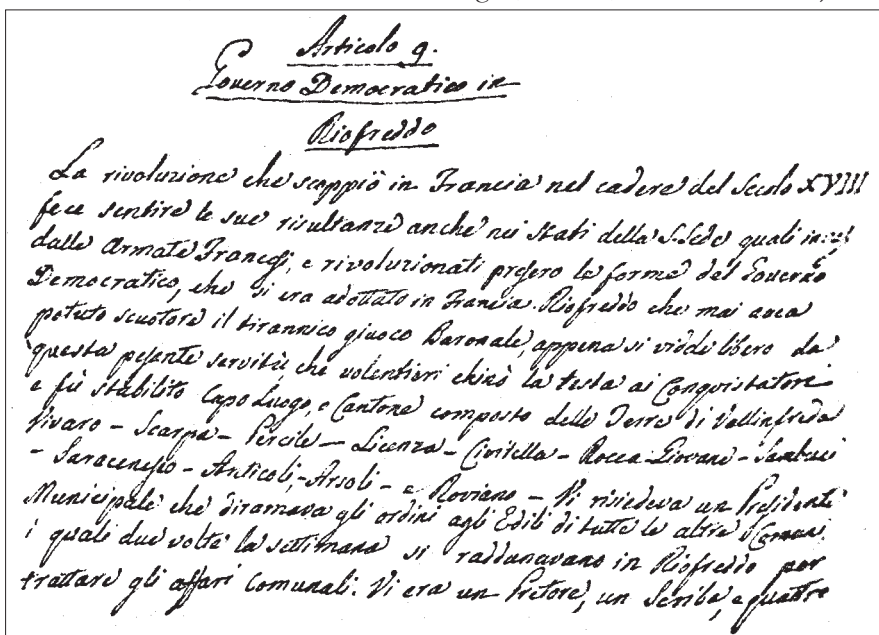 Articolo 9.
Governo Democratico in
Riofreddo
La rivoluzione che scoppiò in Francia nel cadere del Secolo XVIII
fece sentire le sue risultanze anche nei Stati della S. Sede quali
dalle Armate Francesi, e rivoluzionati presero la forma del Governo
Democratico, che si era adottato in Francia. Riofreddo che mai avea
potuto scuotere il tirannico giuoco Baronale, appena si vidde libero da
questa pesante servitù, che volentieri chinò la testa ai Conquistatori
e fù stabilito Capo Luogo, e Cantone composto delle Terre di Vallinfreda
Vivaro - Scarpa - Percile - Licenza - Civitella - Rocca Giovane - Sambuci
- Saracenesco - Anticoli, - Arsoli - e Roviano - Vi risiedeva un Presidente
Municipale che diramava gli ordini agli Edili di tutte le altre Comuni
i quali due volte la settimana si raddunavano in Riofreddo per
trattare gli affari Comunali. Vi era un Pretore, un Scriba, e quattro